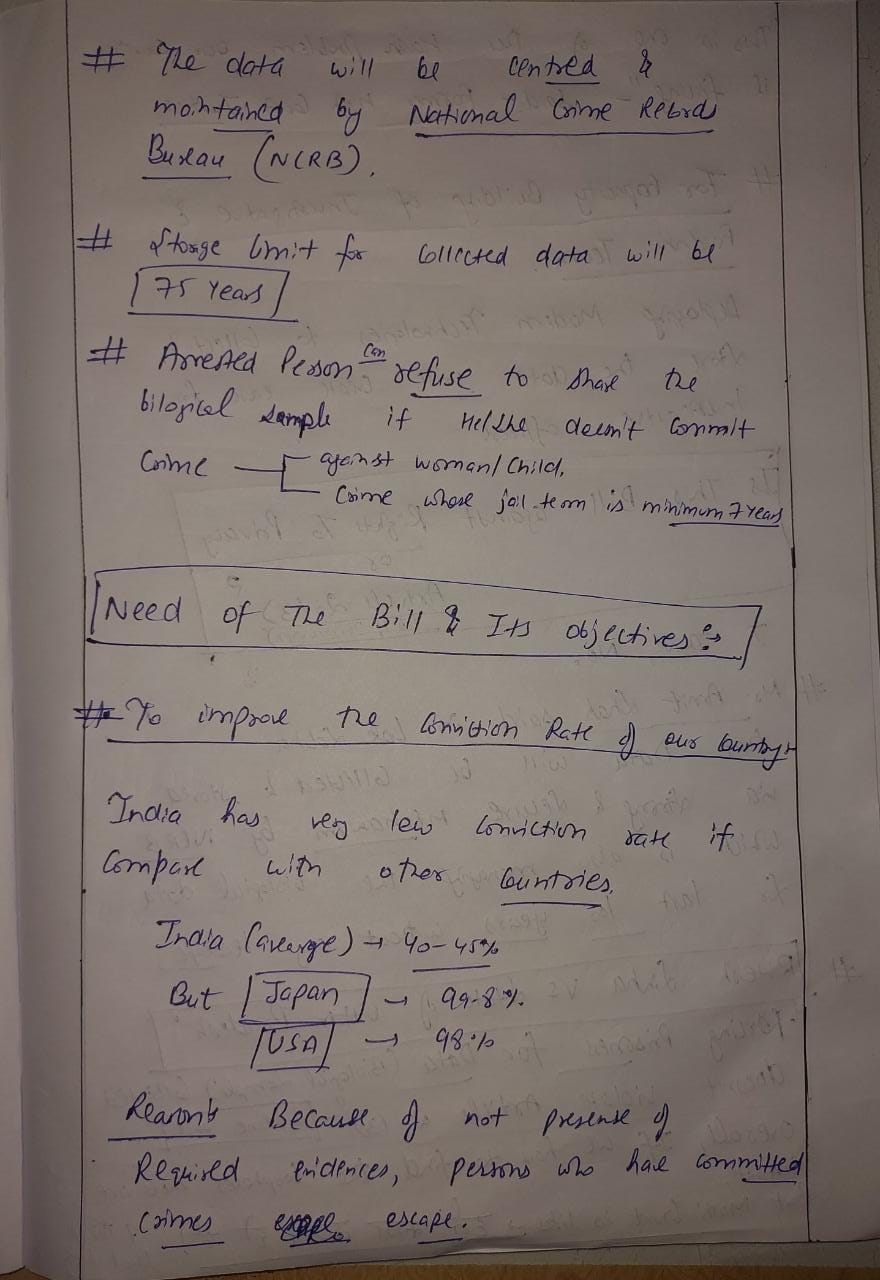 # The data will be centred &
maintained by National Crime Records
Bureau (NCRB).
# Storge limit for Collected data will be
75 Years
# Arrested Person can refuse to share the
bilogical sample if He/she doesn't Commit
Crime against woman/Child,
Crime whose jail term is minimum 7 years
Need of The Bill & Its objectives :→
# To improve the Conviction Rate of our Country→
India has very low Conviction rate if
Compare with other Countries.
India (average) → 40-45%
But Japan → 99.8%.
USA → 98%
Reason:→ Because of not presense of
Required evidences, persons who have committed
Crimes escape.